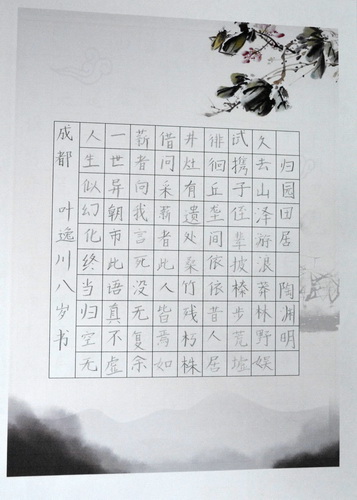 归园田居 陶渊明
久去山泽游浪莽林野娱
试携子侄辈披榛步荒墟
徘徊丘垄间依依昔人居
井灶有遗处桑竹残朽株
借问采薪者此人皆焉如
薪者向我言死没无复余
一世异朝市此语真不虚
人生似幻化终当归空无
成都 叶逸川八岁书